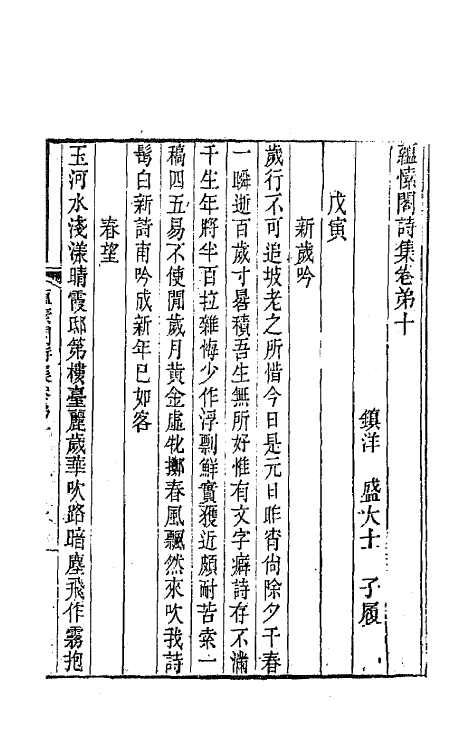 蘊愫閣詩集卷弟十
鎮洋　盛大士　子履
戊寅
新歲吟
歲行不可追坡老之所惜今日是元日昨宵尙除夕千春
一瞬逝百歲寸晷積吾生無所好惟有文字癖詩存不滿
千生年將半百拉雜悔少作浮剽鮮實獲近頗耐苦索一
稿四五易不使閒歲月黃金虛牝擲春風飄然來吹我詩
髩白新詩甫吟成新年已如客
春望
玉河水淺漾晴霞邸第樓臺麗歲華吹路暗塵飛作霧抱